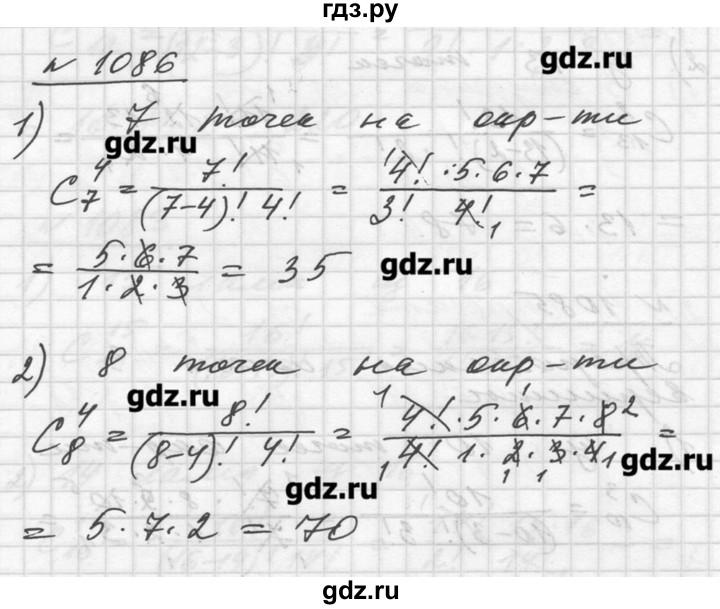 гдз.ру
№ 1086
gdz.ru
1) 7 точек на окр-ти
gdz.ru
C₇⁴ = 7! / (7-4)! 4! = 4! · 5 · 6 · 7 / 3! 4! =
= 5 · 6 · 7 / 1 · 2 · 3 = 35
gdz.ru
2) 8 точек на окр-ти
gdz.ru
C₈⁴ = 8! / (8-4)! 4! = 4! · 5 · 6 · 7 · 8 / 4! 1 · 2 · 3 · 4 =
gdz.ru
gdz.ru
= 5 · 7 · 2 = 70
gdz.ru